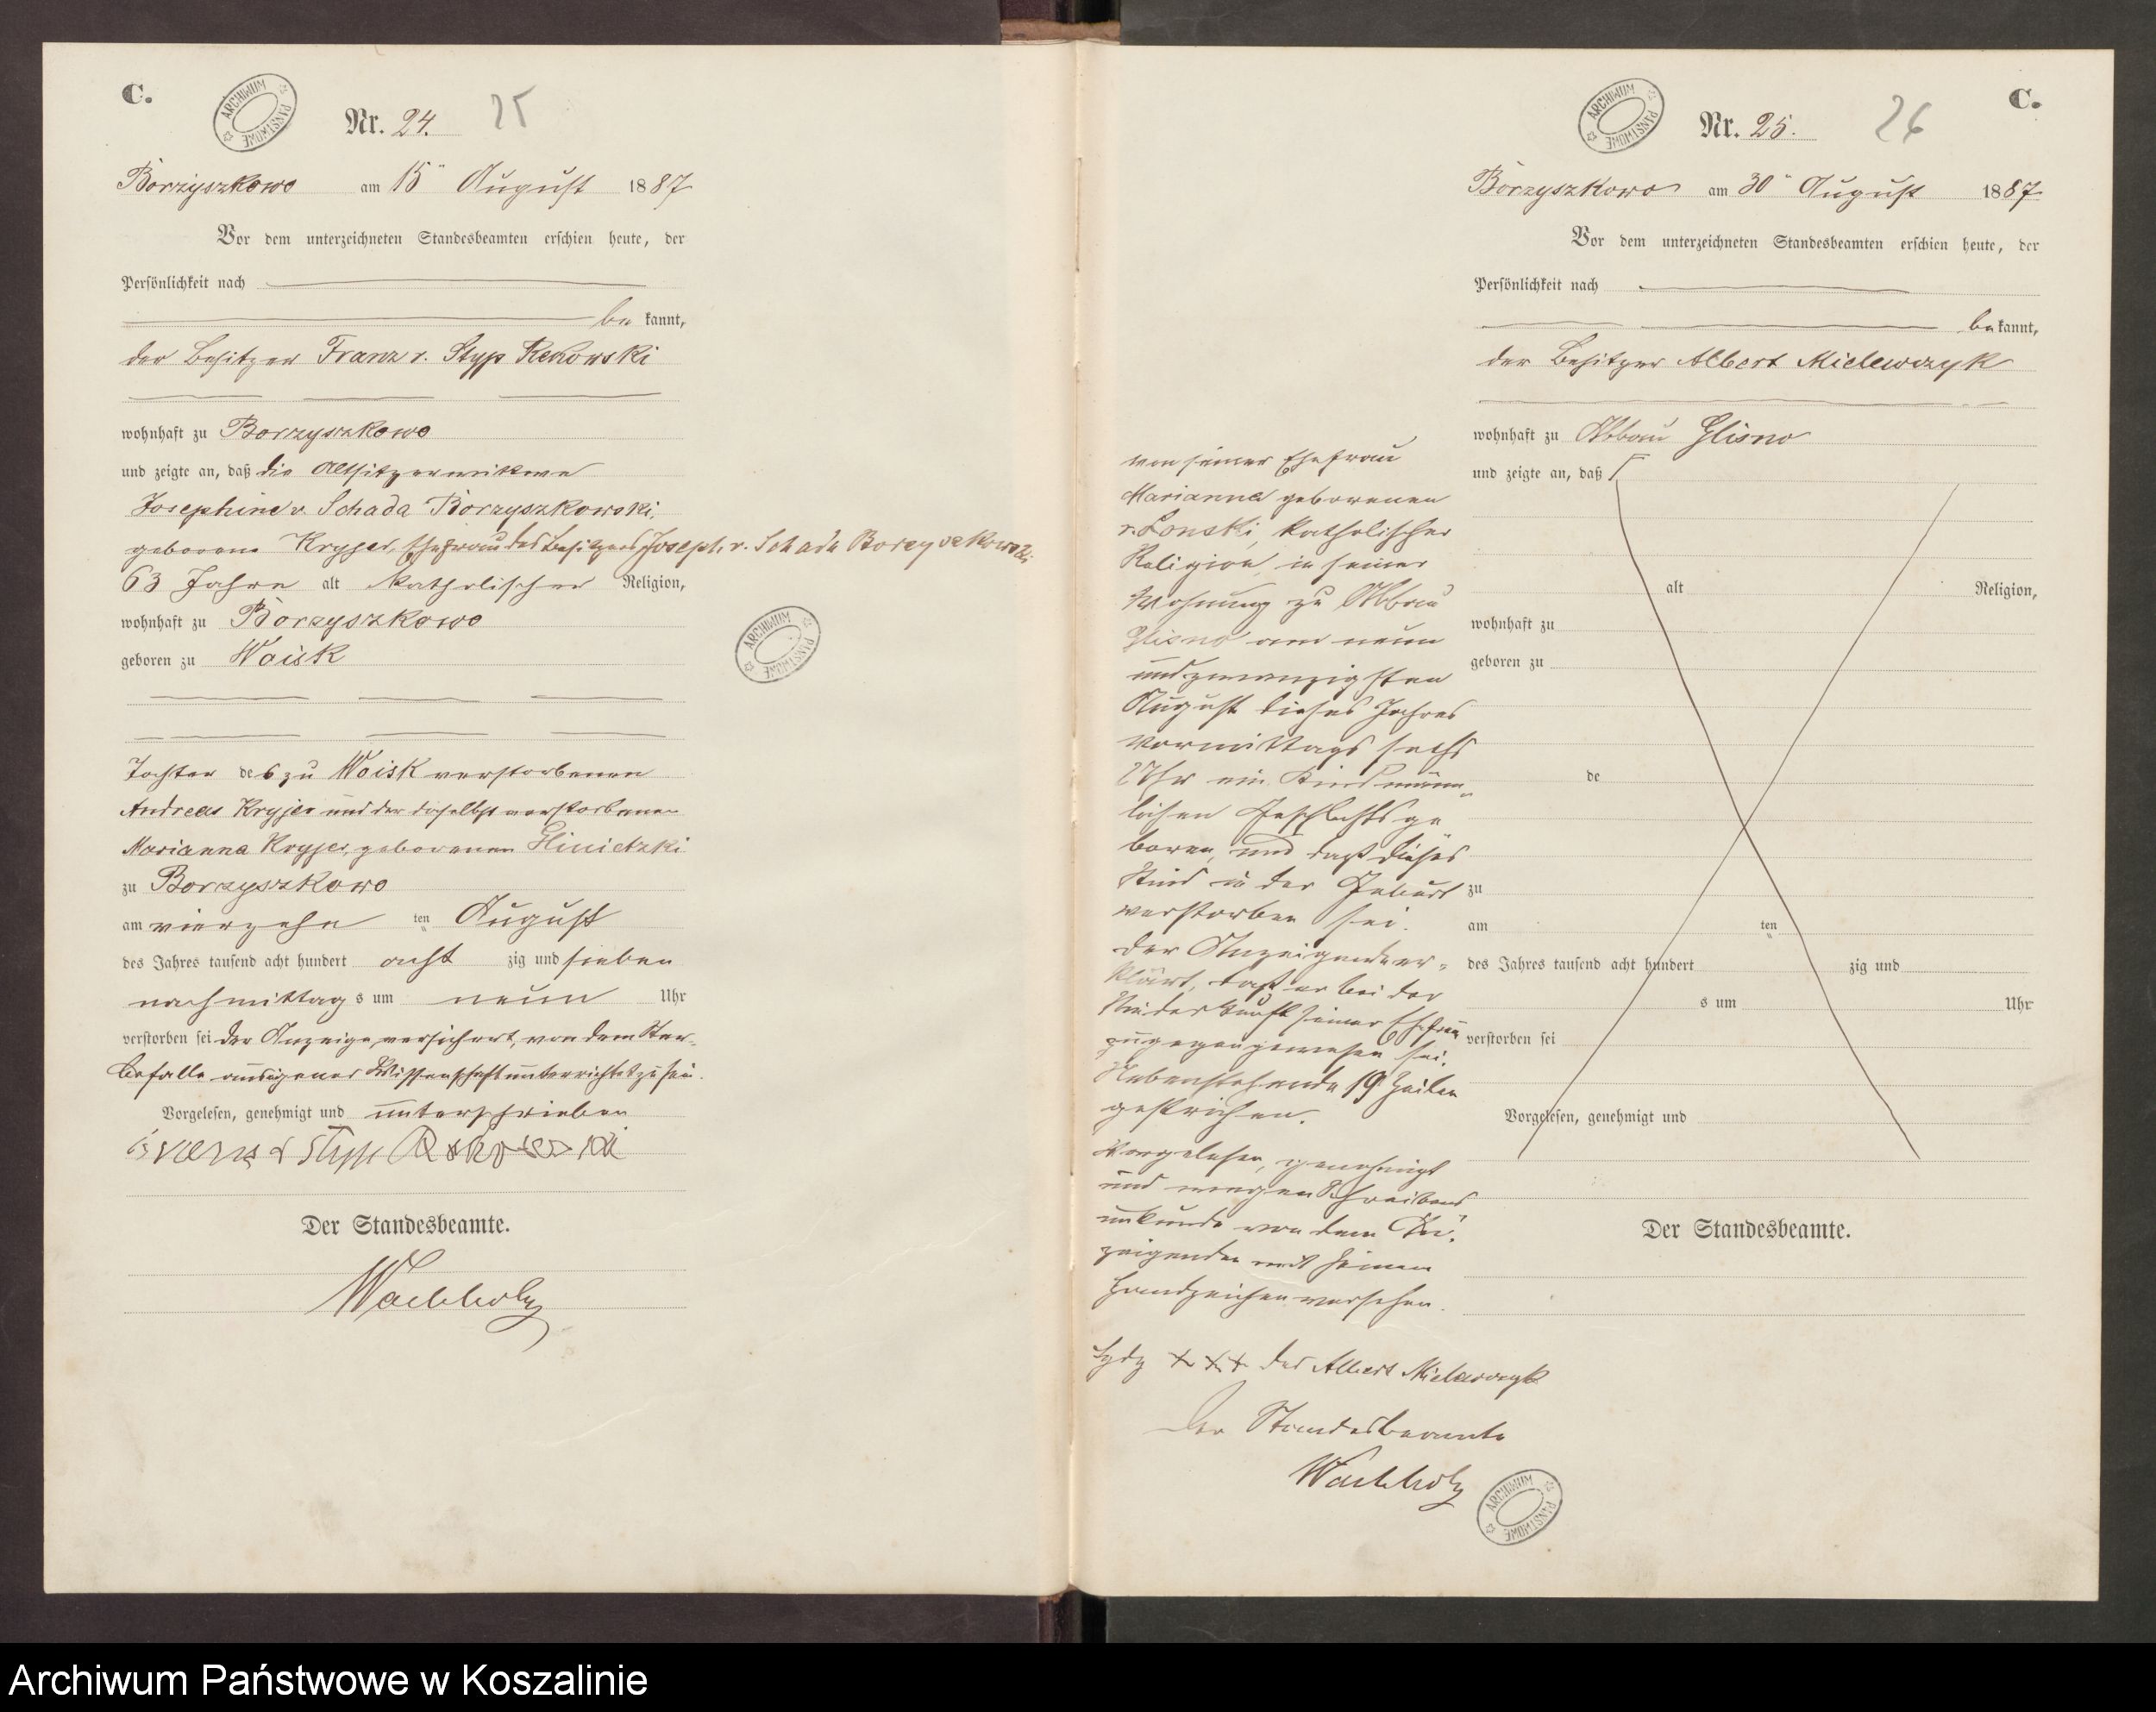 C.
ARCHIWUM PAŃSTWOWE
Nr. 24. 25
Borzyszkowo am 15ⁿ August 1887
Vor dem unterzeichneten Standesbeamten erschien heute, der
Persönlichkeit nach
be kannt,
der Besitzer Franz v. Styp Rekowski
wohnhaft zu Borzyszkowo
und zeigte an, daß die Altsitzerwittwe
Josephine v. Schada Borzyszkowski,
geborene Kryjer, Ehefrau des Besitzers Joseph v. Schada Borzyszkowski
63 Jahre alt katholischer Religion,
wohnhaft zu Borzyszkowo
geboren zu Woisk
ARCHIWUM PAŃSTWOWE
Tochter des zu Woisk verstorbenen
Andreas Kryjer und der daselbst verstorbenen
Marianna Kryjer, geborenen
zu Borzyszkowo
am vierzehn ten August
des Jahres tausend acht hundert acht zig und sieben
nachmittag s um neun Uhr
verstorben sei der Anzeige versichert, von dem Ster-
befalle aus eigener Wissenschaft unterrichtet zu sein.
Vorgelesen, genehmigt und unterschrieben
Styp Rekowski
Der Standesbeamte.
Wachholz
C.
ARCHIWUM PAŃSTWOWE
Nr. 25. 26
Borzyszkowo am 30ⁿ August 1887
Vor dem unterzeichneten Standesbeamten erschien heute, der
Persönlichkeit nach
be kannt,
der Besitzer Albert Mielewczyk
wohnhaft zu Abbau Glisno
und zeigte an, daß
alt Religion,
wohnhaft zu
geboren zu
de
zu
am ten
des Jahres tausend acht hundert zig und
s um Uhr
verstorben sei
Vorgelesen, genehmigt und
Der Standesbeamte.
von seiner Ehefrau
Marianna geborenen
v. Lonski, katholischer
Religion, in seiner
Wohnung zu Abbau
Glisno am neun
und zwanzigsten
August dieses Jahres
vormittags sechs
Uhr ein Kind männ-
lichen Geschlechts ge
boren, und daß dieses
Kind in der Geburt
verstorben sei.
Der Anzeigende er-
klärt, daß er bei der
Niederkunft seiner Ehefrau
zugegen gewesen sei.
Nebenstehende 19 Zeilen
gestrichen.
Vorgelesen, genehmigt
und wegen Schreibens
unkunde von dem An-
zeigenden mit seinem
Handzeichen versehen.
Hdz +++ des Albert Mielewczyk
Der Standesbeamte
Wachholz
ARCHIWUM PAŃSTWOWE
Archiwum Państwowe w Koszalinie